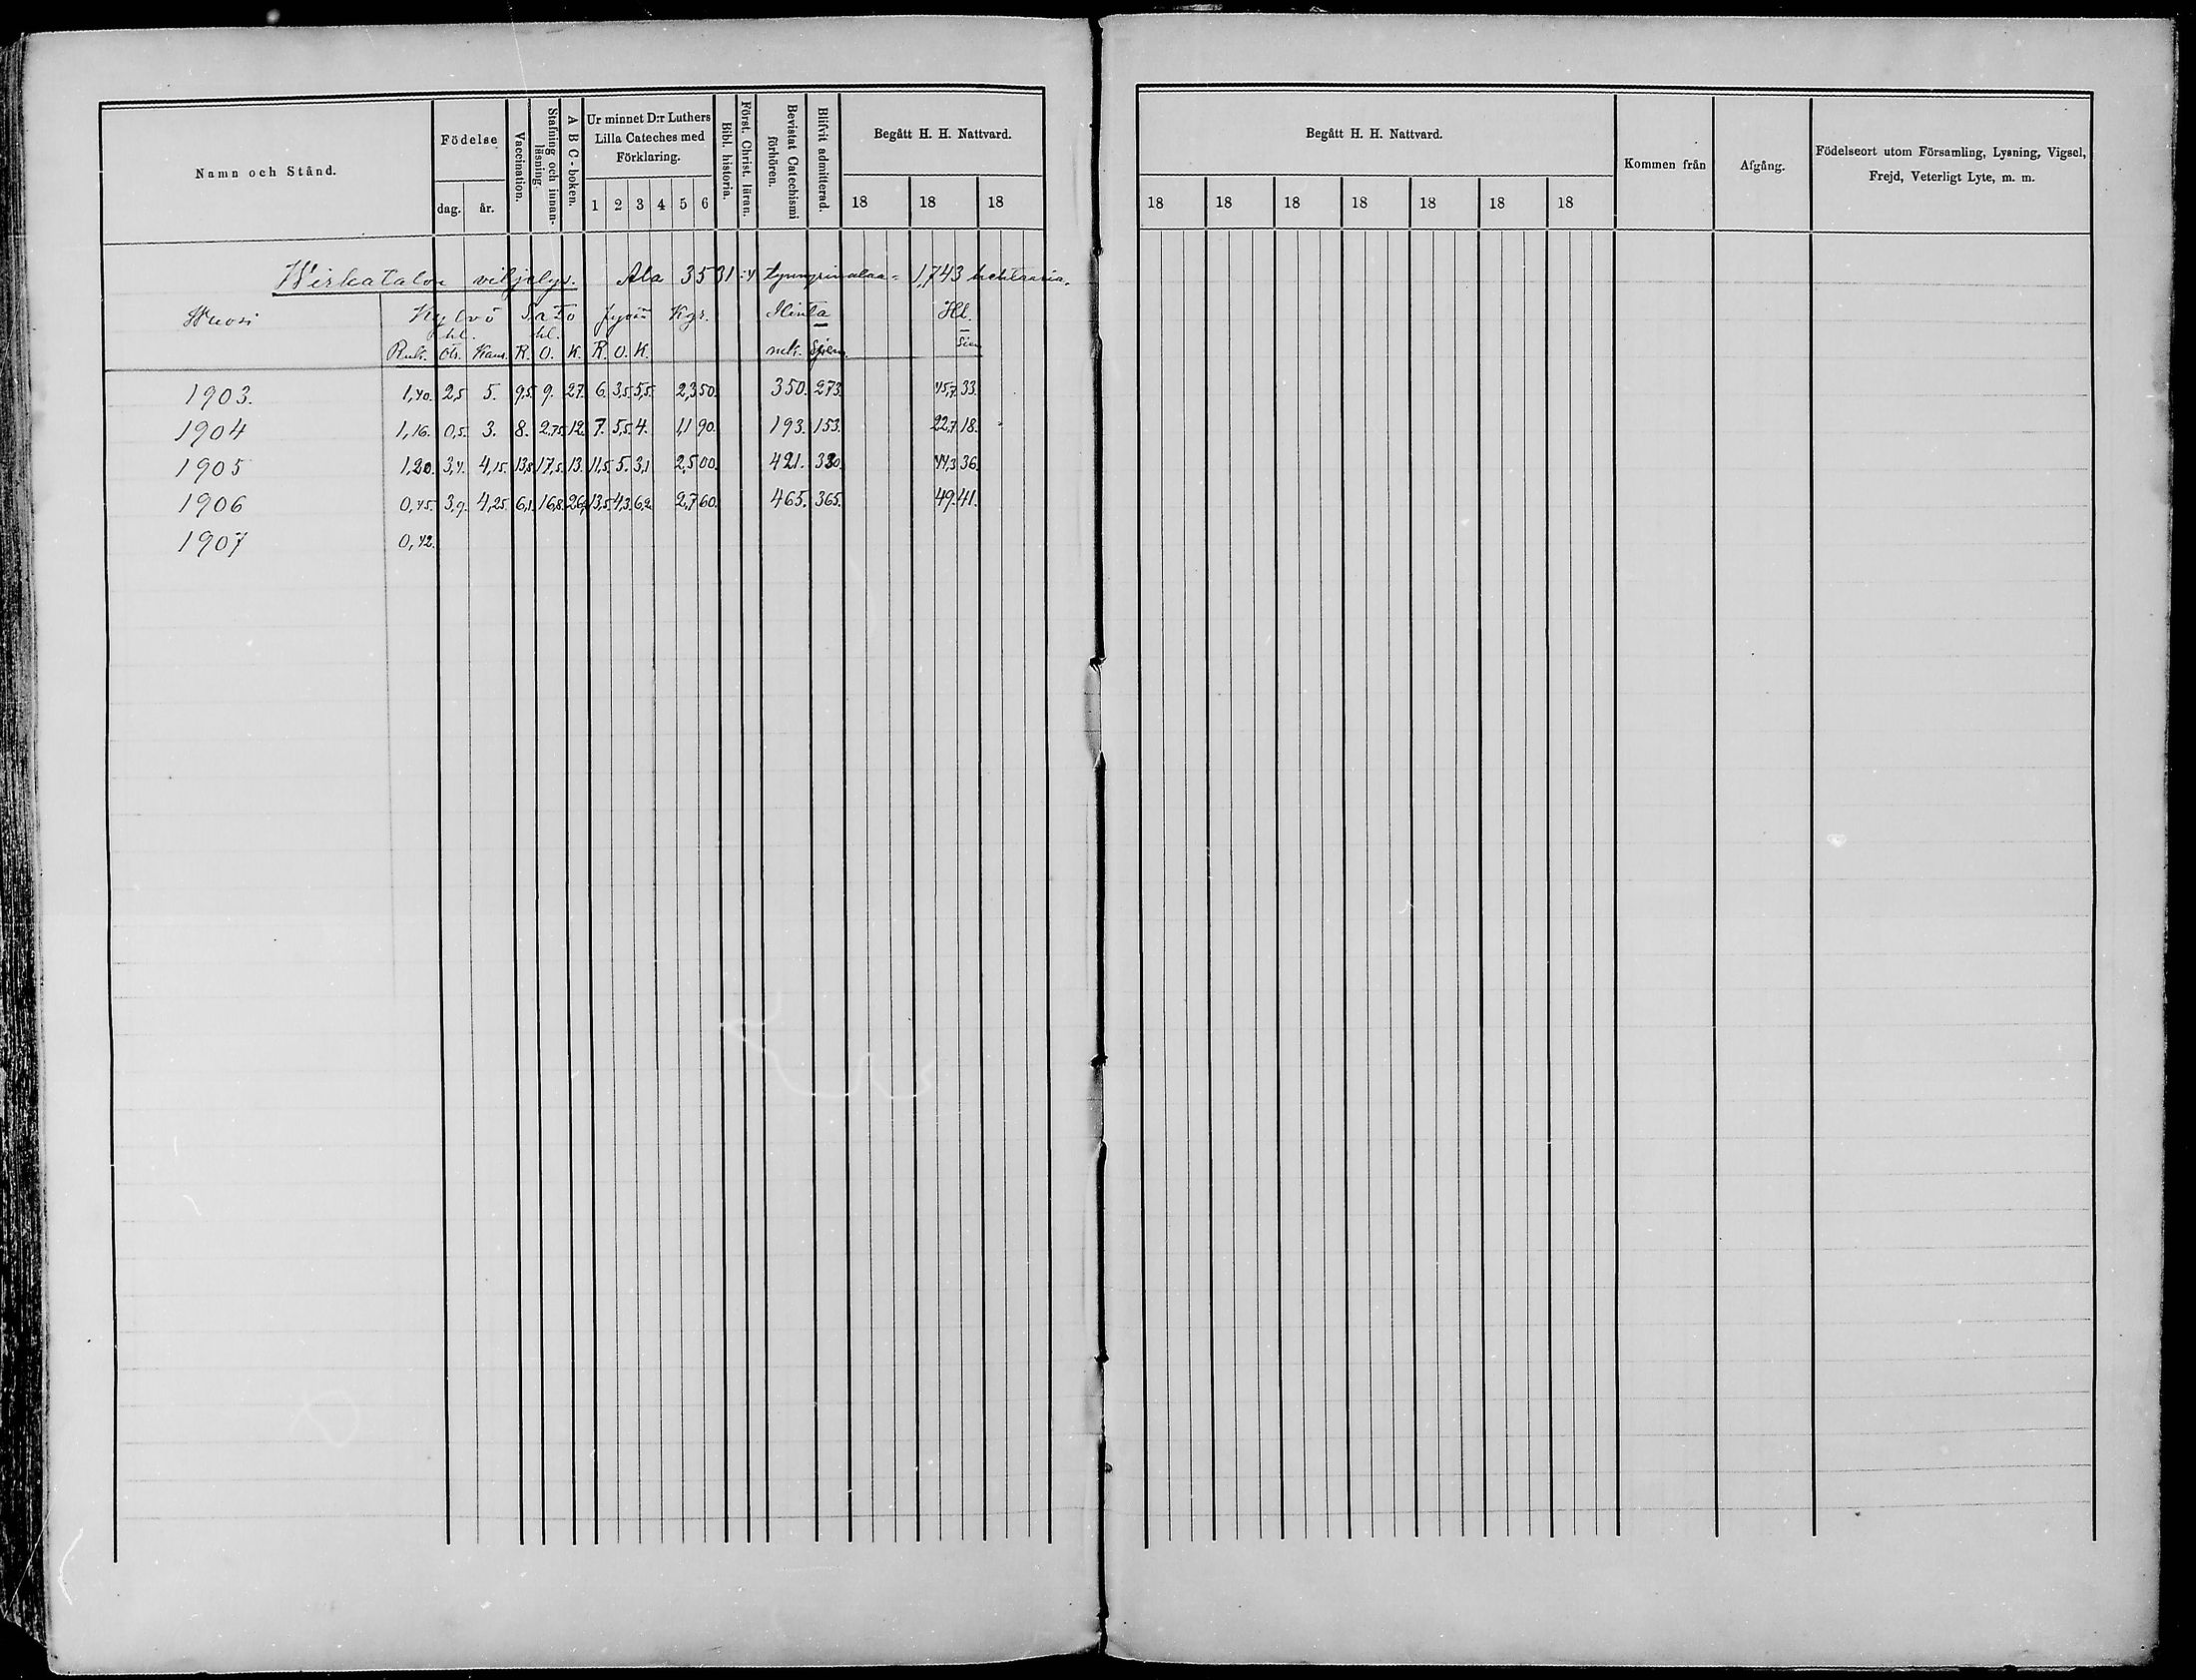 Namn och Stånd.
Födelse
dag. år.
Vaccination.
Stafning och innan-
läsning.
A B C-boken.
Ur minnet D:r Luthers
Lilla Cateches med
Förklaring.
1 2 3 4 5 6
Bibl. historia.
Först. Christ. läran.
Bevistat Catechismi
förhören.
Blifvit admitterad.
Begått H. H. Nattvard.
18 18 18
Wirkatalon viljelys. Ala 3531:4 kynnyrinalaa = 1,743 hehtaaria.
Wuosi Kylvö Sato Jyvä Kgr. Hinta Hl.
hl. hl.
Ruk. Otr. Kaur. R. O. K. R. O. K. netto. Siem Siem
1903. 1,40. 2,5 5. 9,5. 9. 27. 6. 3,5. 5,5. 2,350. 350. 273. 45,7. 33.
1904 1,16. 0,5. 3. 8. 2,75. 12. 7. 5,5. 4. 1,190. 193. 153. 22,7. 18.
1905 1,20. 3,4. 4,15. 13,8. 17,5. 13. 11,5. 5. 3,1 2,500. 421. 330. 44,3. 36.
1906 0,45. 3,9. 4,25. 6,1. 16,8. 26, 13,5. 4,3. 6,2. 2,760. 465. 365. 49. 41.
1907 0,42.
Begått H. H. Nattvard.
18 18 18 18 18 18 18
Kommen från
Afgång.
Födelseort utom Församling, Lysning, Vigsel,
Frejd, Veterligt Lyte, m. m.